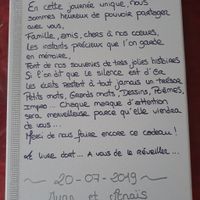 En cette journée unique, nous
sommes heureux de pouvoir partager
avec vous,
Famille, amis, chers à nos cœurs,
Les instants précieux que l'on garde
en mémoire,
Font de nos souvenirs de très jolies histoires
Si l'on dit que le silence est d'or
Les écrits restent à tout jamais un trésor
Petits mots, Grands mots, Dessins, Poèmes,
Impro ... Chaque marque d'attention
sera merveilleuse parce qu'elle viendra
de vous ...
Merci de nous faire encore ce cadeau !
Le livre dort ... A vous de le réveiller ...
~ 20-07-2019 ~
et Anaïs